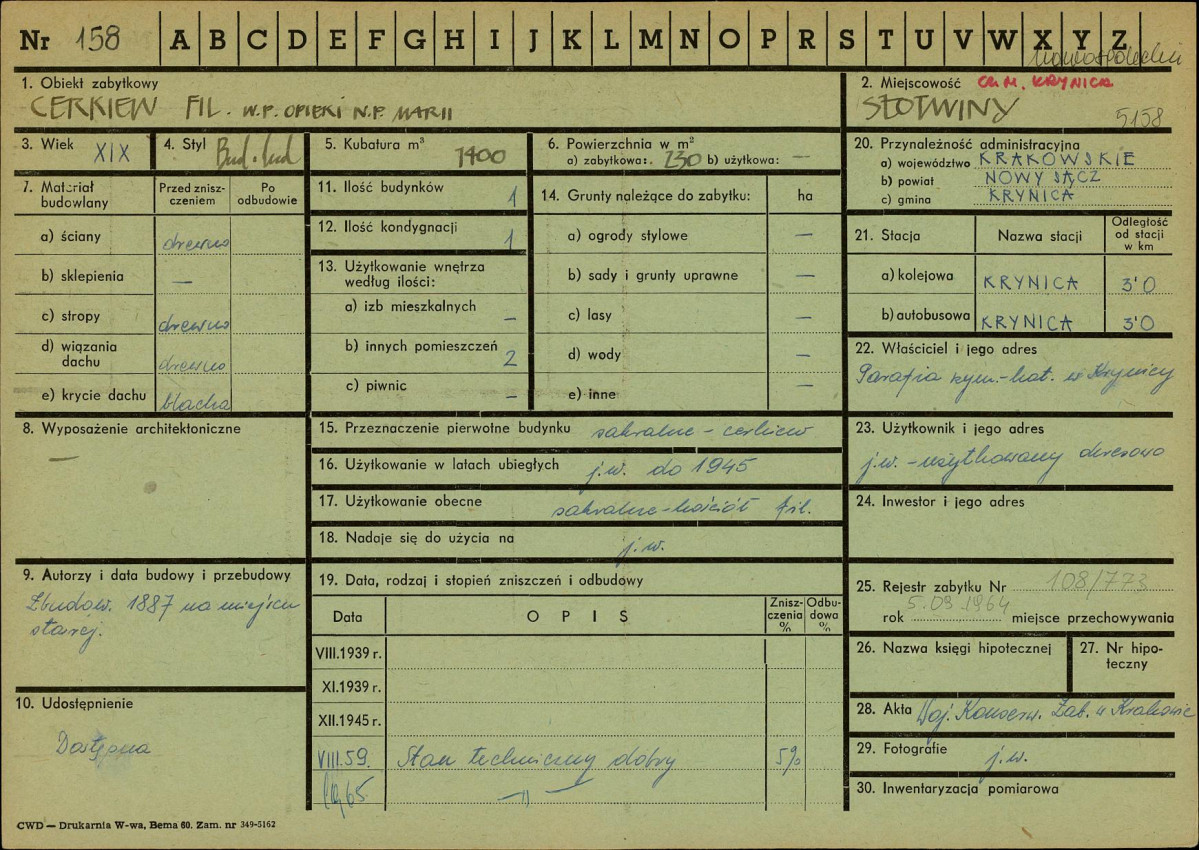 Nr 158 A B C D E F G H I J K L M N O P R S T U V W X Y Z
1. Obiekt zabytkowy
CERKIEW FIL. W.P. OPIEKI N.P. MARII
2. Miejscowość
GM. KRYNICA
SŁOTWINY
5158
3. Wiek XIX
4. Styl Bud. lud
5. Kubatura m³ 1400
6. Powierzchnia w m²
a) zabytkowa: 230 b) użytkowa: —
20. Przynależność administracyjna
a) województwo KRAKOWSKIE
b) powiat NOWY SĄCZ
c) gmina KRYNICA
7. Materiał budowlany
Przed zniszczeniem
Po odbudowie
a) ściany drewno
b) sklepienia —
c) stropy drewno
d) wiązania dachu drewno
e) krycie dachu blacha
11. Ilość budynków 1
12. Ilość kondygnacji 1
13. Użytkowanie wnętrza według ilości:
a) izb mieszkalnych –
b) innych pomieszczeń 2
c) piwnic –
14. Grunty należące do zabytku: ha
a) ogrody stylowe —
b) sady i grunty uprawne —
c) lasy —
d) wody —
e) inne —
21. Stacja
Nazwa stacji
Odległość od stacji w km
a) kolejowa KRYNICA 3'0
b) autobusowa KRYNICA 3'0
22. Właściciel i jego adres
Parafia rzym.-kat. w Krynicy
8. Wyposażenie architektoniczne
—
15. Przeznaczenie pierwotne budynku sakralne - cerkiew
16. Użytkowanie w latach ubiegłych j.w. do 1945
17. Użytkowanie obecne sakralne - kościół fil.
18. Nadaje się do użycia na j.w.
23. Użytkownik i jego adres
j.w. - użytkowany okresowo
24. Inwestor i jego adres
9. Autorzy i data budowy i przebudowy
Zbudow. 1887 na miejscu
starej.
19. Data, rodzaj i stopień zniszczeń i odbudowy
Data
OPIS
Zniszczenia %
Odbudowa %
VIII.1939 r.
XI.1939 r.
XII.1945 r.
VIII.59. Stan techniczny dobry 5%
65 —„—
25. Rejestr zabytku Nr 108/773
5.09.1964
rok miejsce przechowywania
26. Nazwa księgi hipotecznej
27. Nr hipoteczny
10. Udostępnienie
Dostępna
28. Akta Woj. Konserw. Zab. w Krakowie
29. Fotografie j.w.
30. Inwentaryzacja pomiarowa
CWD — Drukarnia W-wa, Bema 60. Zam. nr 349-5162